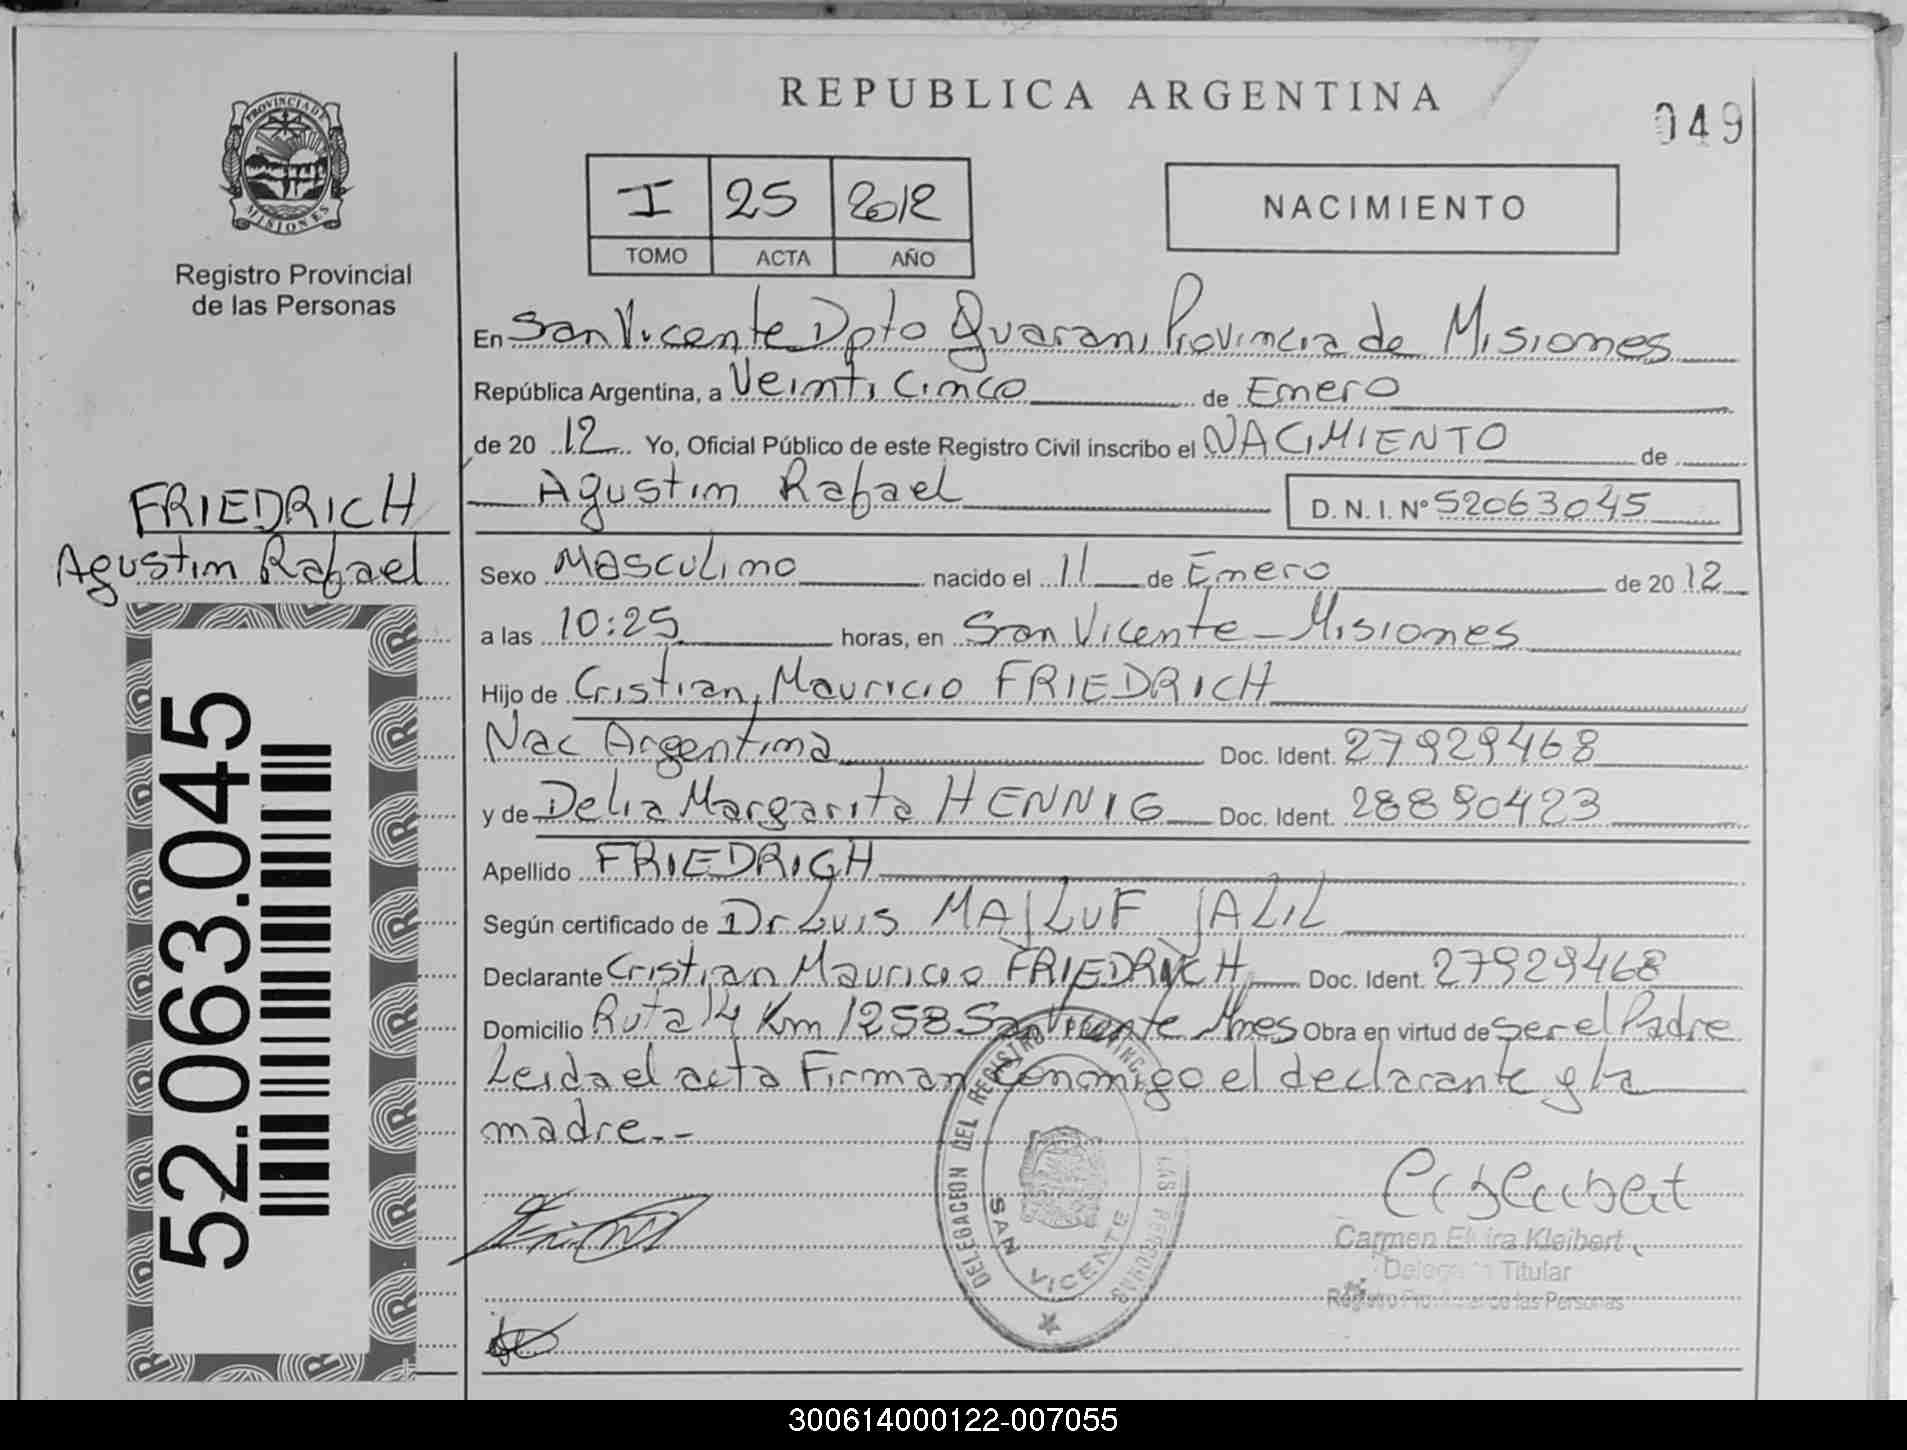 REPUBLICA ARGENTINA
049
PROVINCIA DE MISIONES
Registro Provincial
de las Personas
I 25 2012
TOMO ACTA AÑO
NACIMIENTO
En San Vicente Dpto Guarani Provincia de Misiones
República Argentina, a Veinti Cinco de Enero
de 20 12 Yo, Oficial Público de este Registro Civil inscribo el NACIMIENTO de
Agustin Rafael D.N.I. Nº 52063045
FRIEDRICH
Agustin Rafael
52.063.045
Sexo Masculino nacido el 11 de Enero de 20 12
a las 10:25 horas, en San Vicente - Misiones
Hijo de Cristian Mauricio FRIEDRICH
Nac Argentina Doc. Ident. 27929468
y de Delia Margarita HENNIG Doc. Ident. 28890423
Apellido FRIEDRICH
Según certificado de Dr Luis MAJLUF JALIL
Declarante Cristian Mauricio FRIEDRICH Doc. Ident. 27929468
Domicilio Ruta 14 Km 1258 San Vicente Mnes Obra en virtud de ser el Padre
Leida el acta Firman Conmigo el declarante y la
madre--
DELEGACION DEL REGISTRO PROVINCIAL DE LAS PERSONAS
SAN VICENTE
Carmen Elvira Kleibert
Delegada Titular
Registro Provincial de las Personas
300614000122-007055